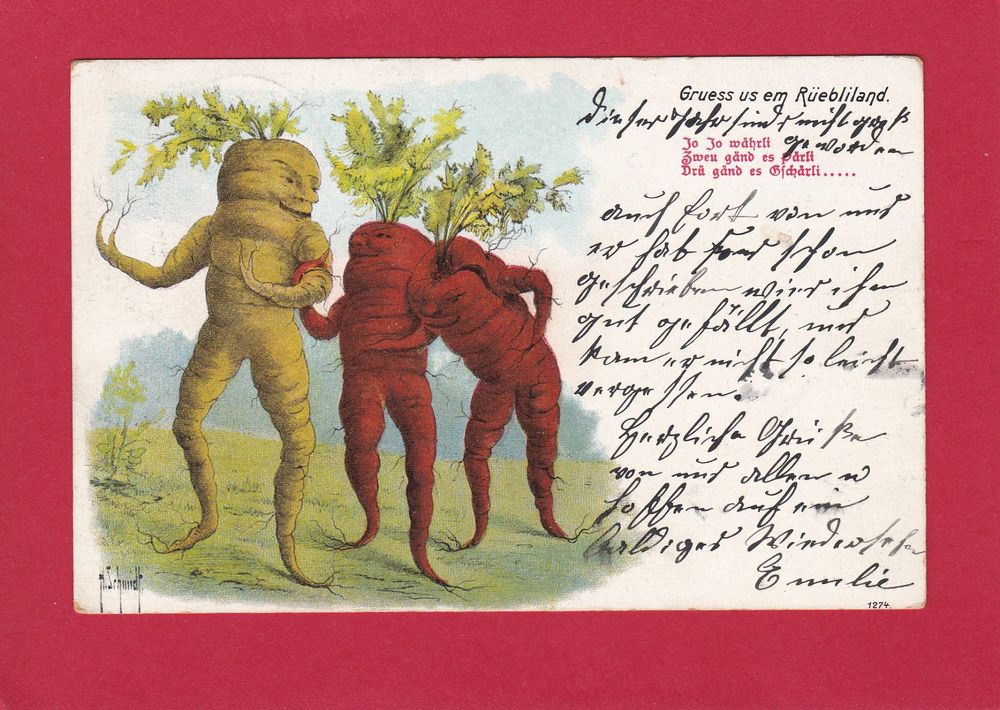 Gruess us em Rüebliland.
dieser Jahr sind nicht groß
Jo Jo währli
geworden
Zweu gänd es Pärli
Drü gänd es Gschärli.....
auch fort von uns
er hab schon
geschrieben wies ihm
gut gefällt, und
kam er nicht so leicht
vergessen.
Herzliche Grüße
von uns allen u
hoffen auf ein
baldiges Wiedersehen
Emilie
A. Schmidt
1274.